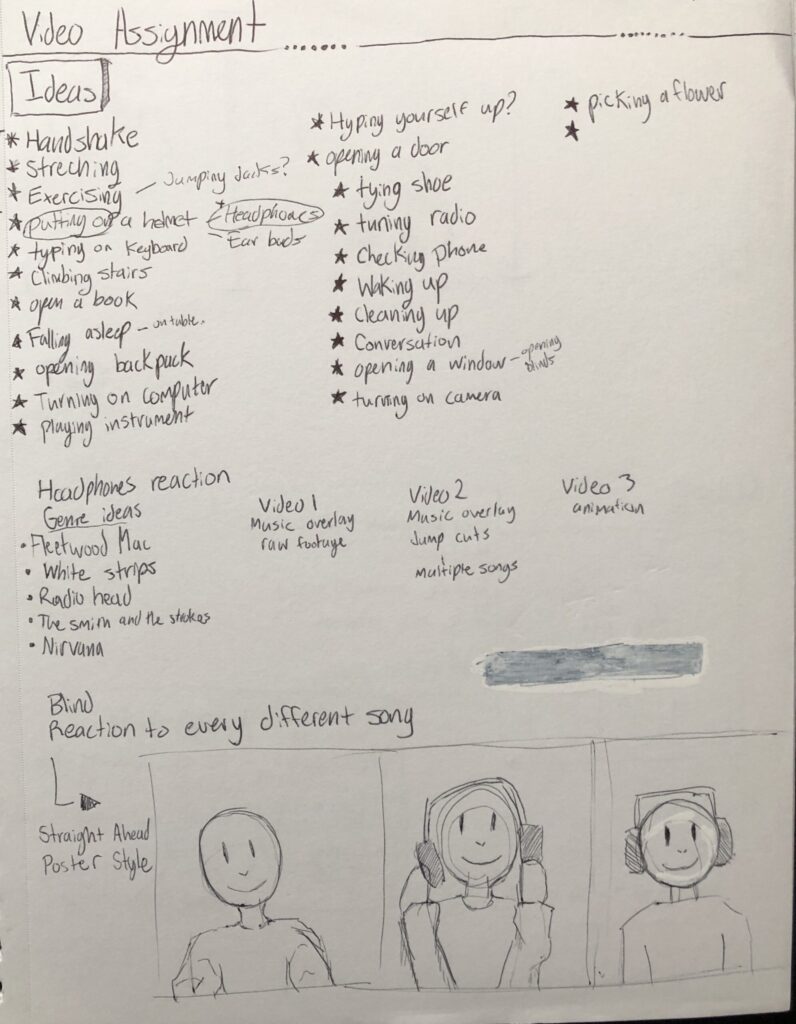 Video Assignment
Ideas
* Handshake
* Streching
* Exercising - Jumping Jacks?
* putting on a helmet - Headphones
- Ear buds
* typing on keyboard
* Climbing stairs
* open a book
* Falling asleep - on table.
* opening backpack
* Turning on computer
* playing instrument
* Hyping yourself up?
* opening a door
* tying shoe
* tuning radio
* Checking phone
* Waking up
* Cleaning up
* Conversation
* opening a window - opening
blinds
* turning on camera
* picking a flower
*
Headphones reaction
Genre ideas
• Fleetwood Mac
• White strips
• Radio head
• The smith and the strokes
• Nirvana
Video 1
Music overlay
raw footage
Video 2
Music overlay
Jump cuts
Multiple songs
Video 3
animation
Blind
Reaction to every different song
Straight Ahead
Poster Style